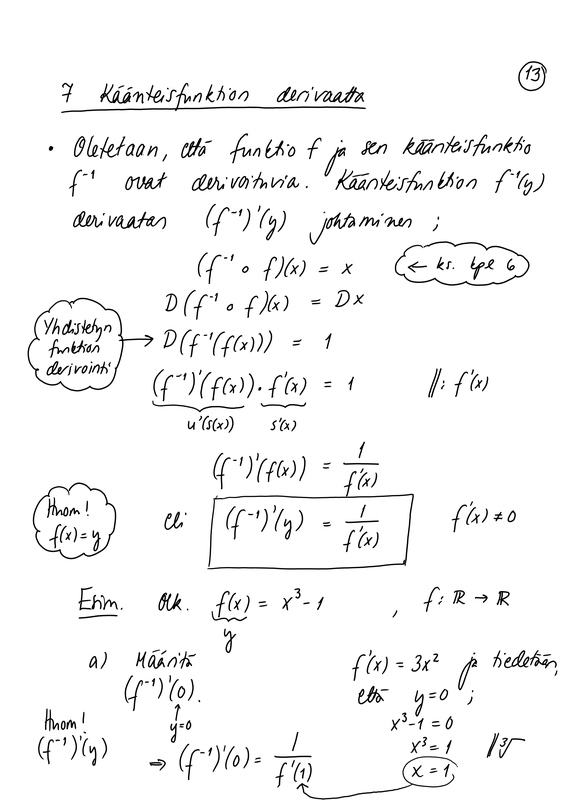 13
7 Käänteisfunktion derivaatta
• Oletetaan, että funktio f ja sen käänteisfunktio
f⁻¹ ovat derivoituvia. Käänteisfunktion f⁻¹(y)
derivaatan (f⁻¹)'(y) johtaminen ;
(f⁻¹ ∘ f)(x) = x ← ks. kpl 6
D(f⁻¹ ∘ f)(x) = Dx
Yhdistetyn
funktion
derivointi
→ D(f⁻¹(f(x))) = 1
(f⁻¹)'(f(x)) · f'(x) = 1 ||: f'(x)
u'(s(x)) s'(x)
(f⁻¹)'(f(x)) = 1/f'(x)
Huom!
f(x) = y
eli (f⁻¹)'(y) = 1/f'(x) f'(x) ≠ 0
Esim. Olk. f(x) = x³ - 1 , f: ℝ → ℝ
y
a) Määritä
(f⁻¹)'(0).
↑
y=0
f'(x) = 3x² ja tiedetään,
että y=0 ;
x³-1 = 0
x³ = 1 ||³√
x = 1,
Huom!
(f⁻¹)'(y)
⇒ (f⁻¹)'(0) = 1/f'(1)